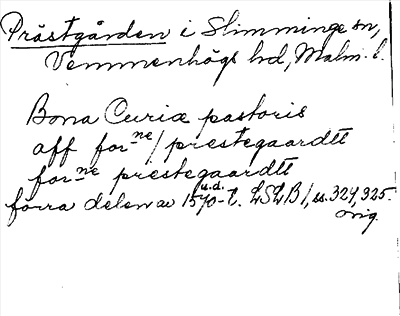 Prästgården i Slimminge sn,
Vemmenhögs hd, Malm. l.
Bona Curiæ pastoris
aff for<u>ne</u>/prestegaardtt
for<u>ne</u> prestegaardtt
u.d.
förra delen av 1570-t. LSLB 1, ss. 324, 325.
orig.